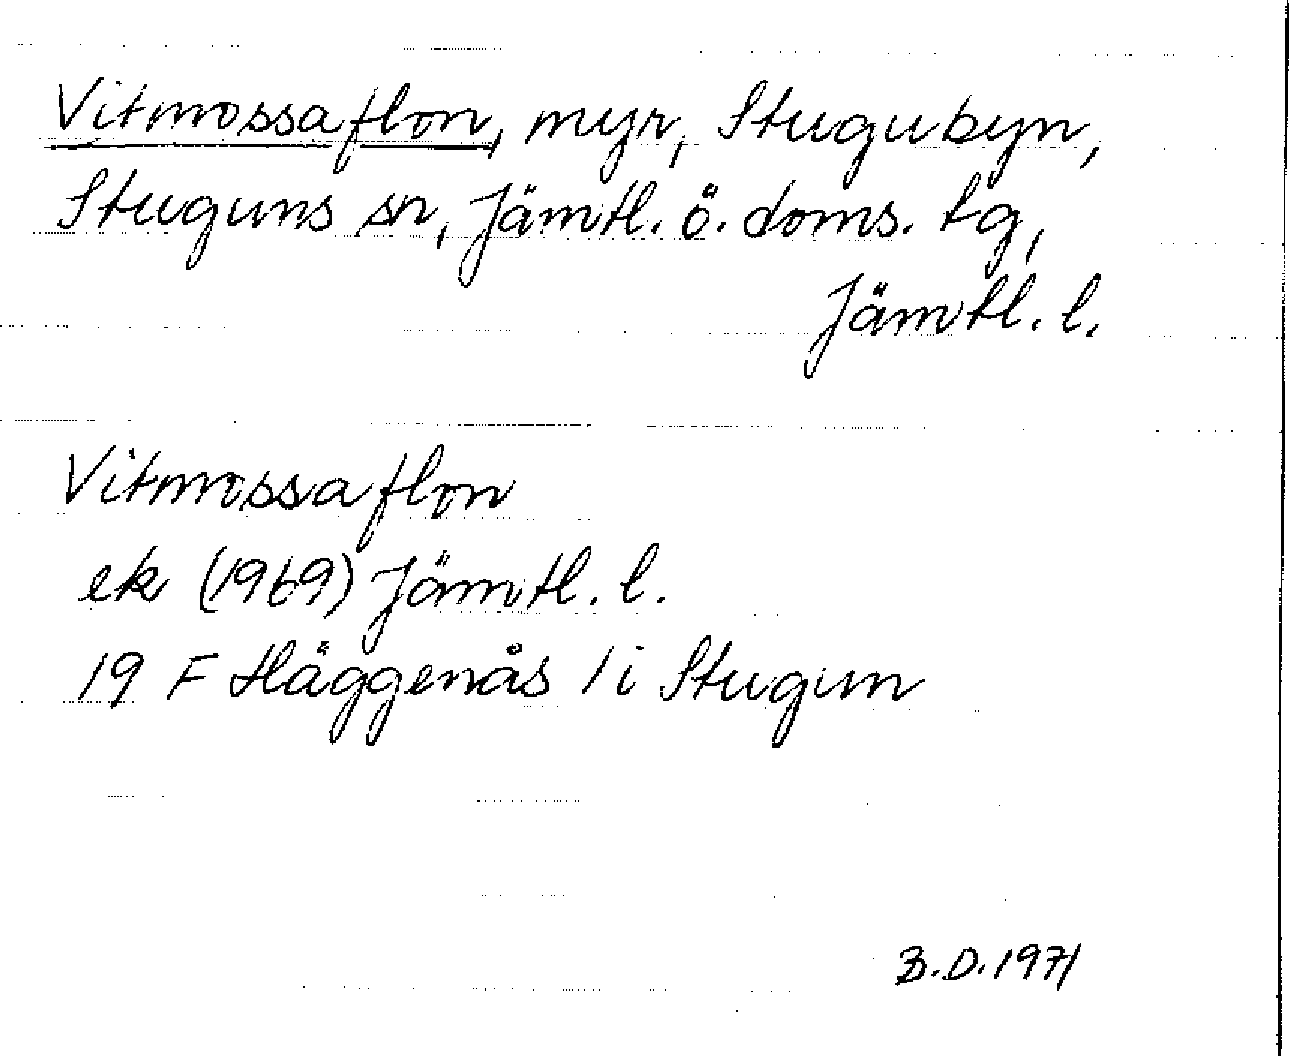 Vitmossaflon, myr, Stugubyn,
Stuguns sn, Jämtl. ö. doms. tg,
Jämtl. l.
Vitmossaflon
ek (1969) Jämtl. l.
19 F Häggenås / i Stugun
B.D. 1971